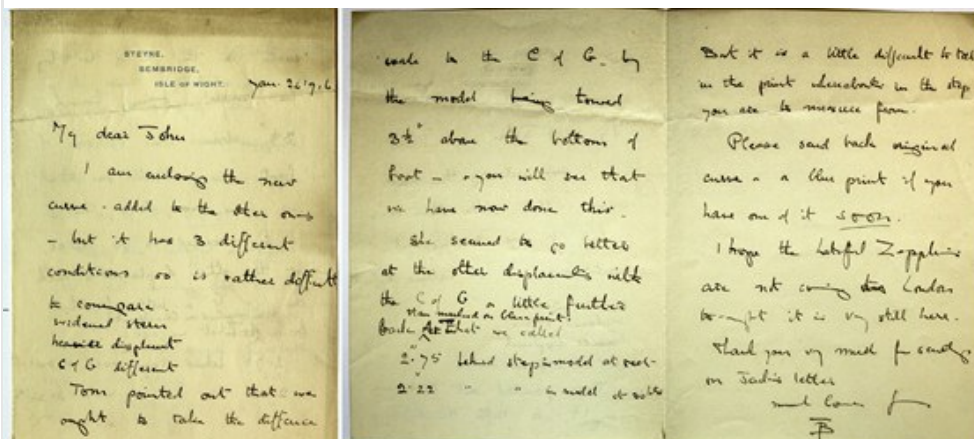 STEYNE,
BEMBRIDGE,
ISLE OF WIGHT.
Jan. 26 1916
My dear John
I am enclosing the new
curve - added to the other ones
- but it has 3 different
conditions so is rather difficult
to compare
widened stern
heavier displment
C of G different
Tom pointed out that we
ought to take the difference
made in the C of G. by
the model being towed
3½" above the bottom of
boat - you will see that
we have now done this.
She seemed to go better
at the other displacements with
the C of G a little further
than marked on blue print!
back what we called
2".75 behind step in model at rest
2".22 " " in model at
But it is a little difficult to tell
in the print whereabouts in the step
you are to measure from.
Please send back original
curve - a blue print if you
have one of it soon.
I hope the hateful Zeppelins
are not coming London
to-night it is very still here.
Thank you very much for sending
on letter
much love from
B